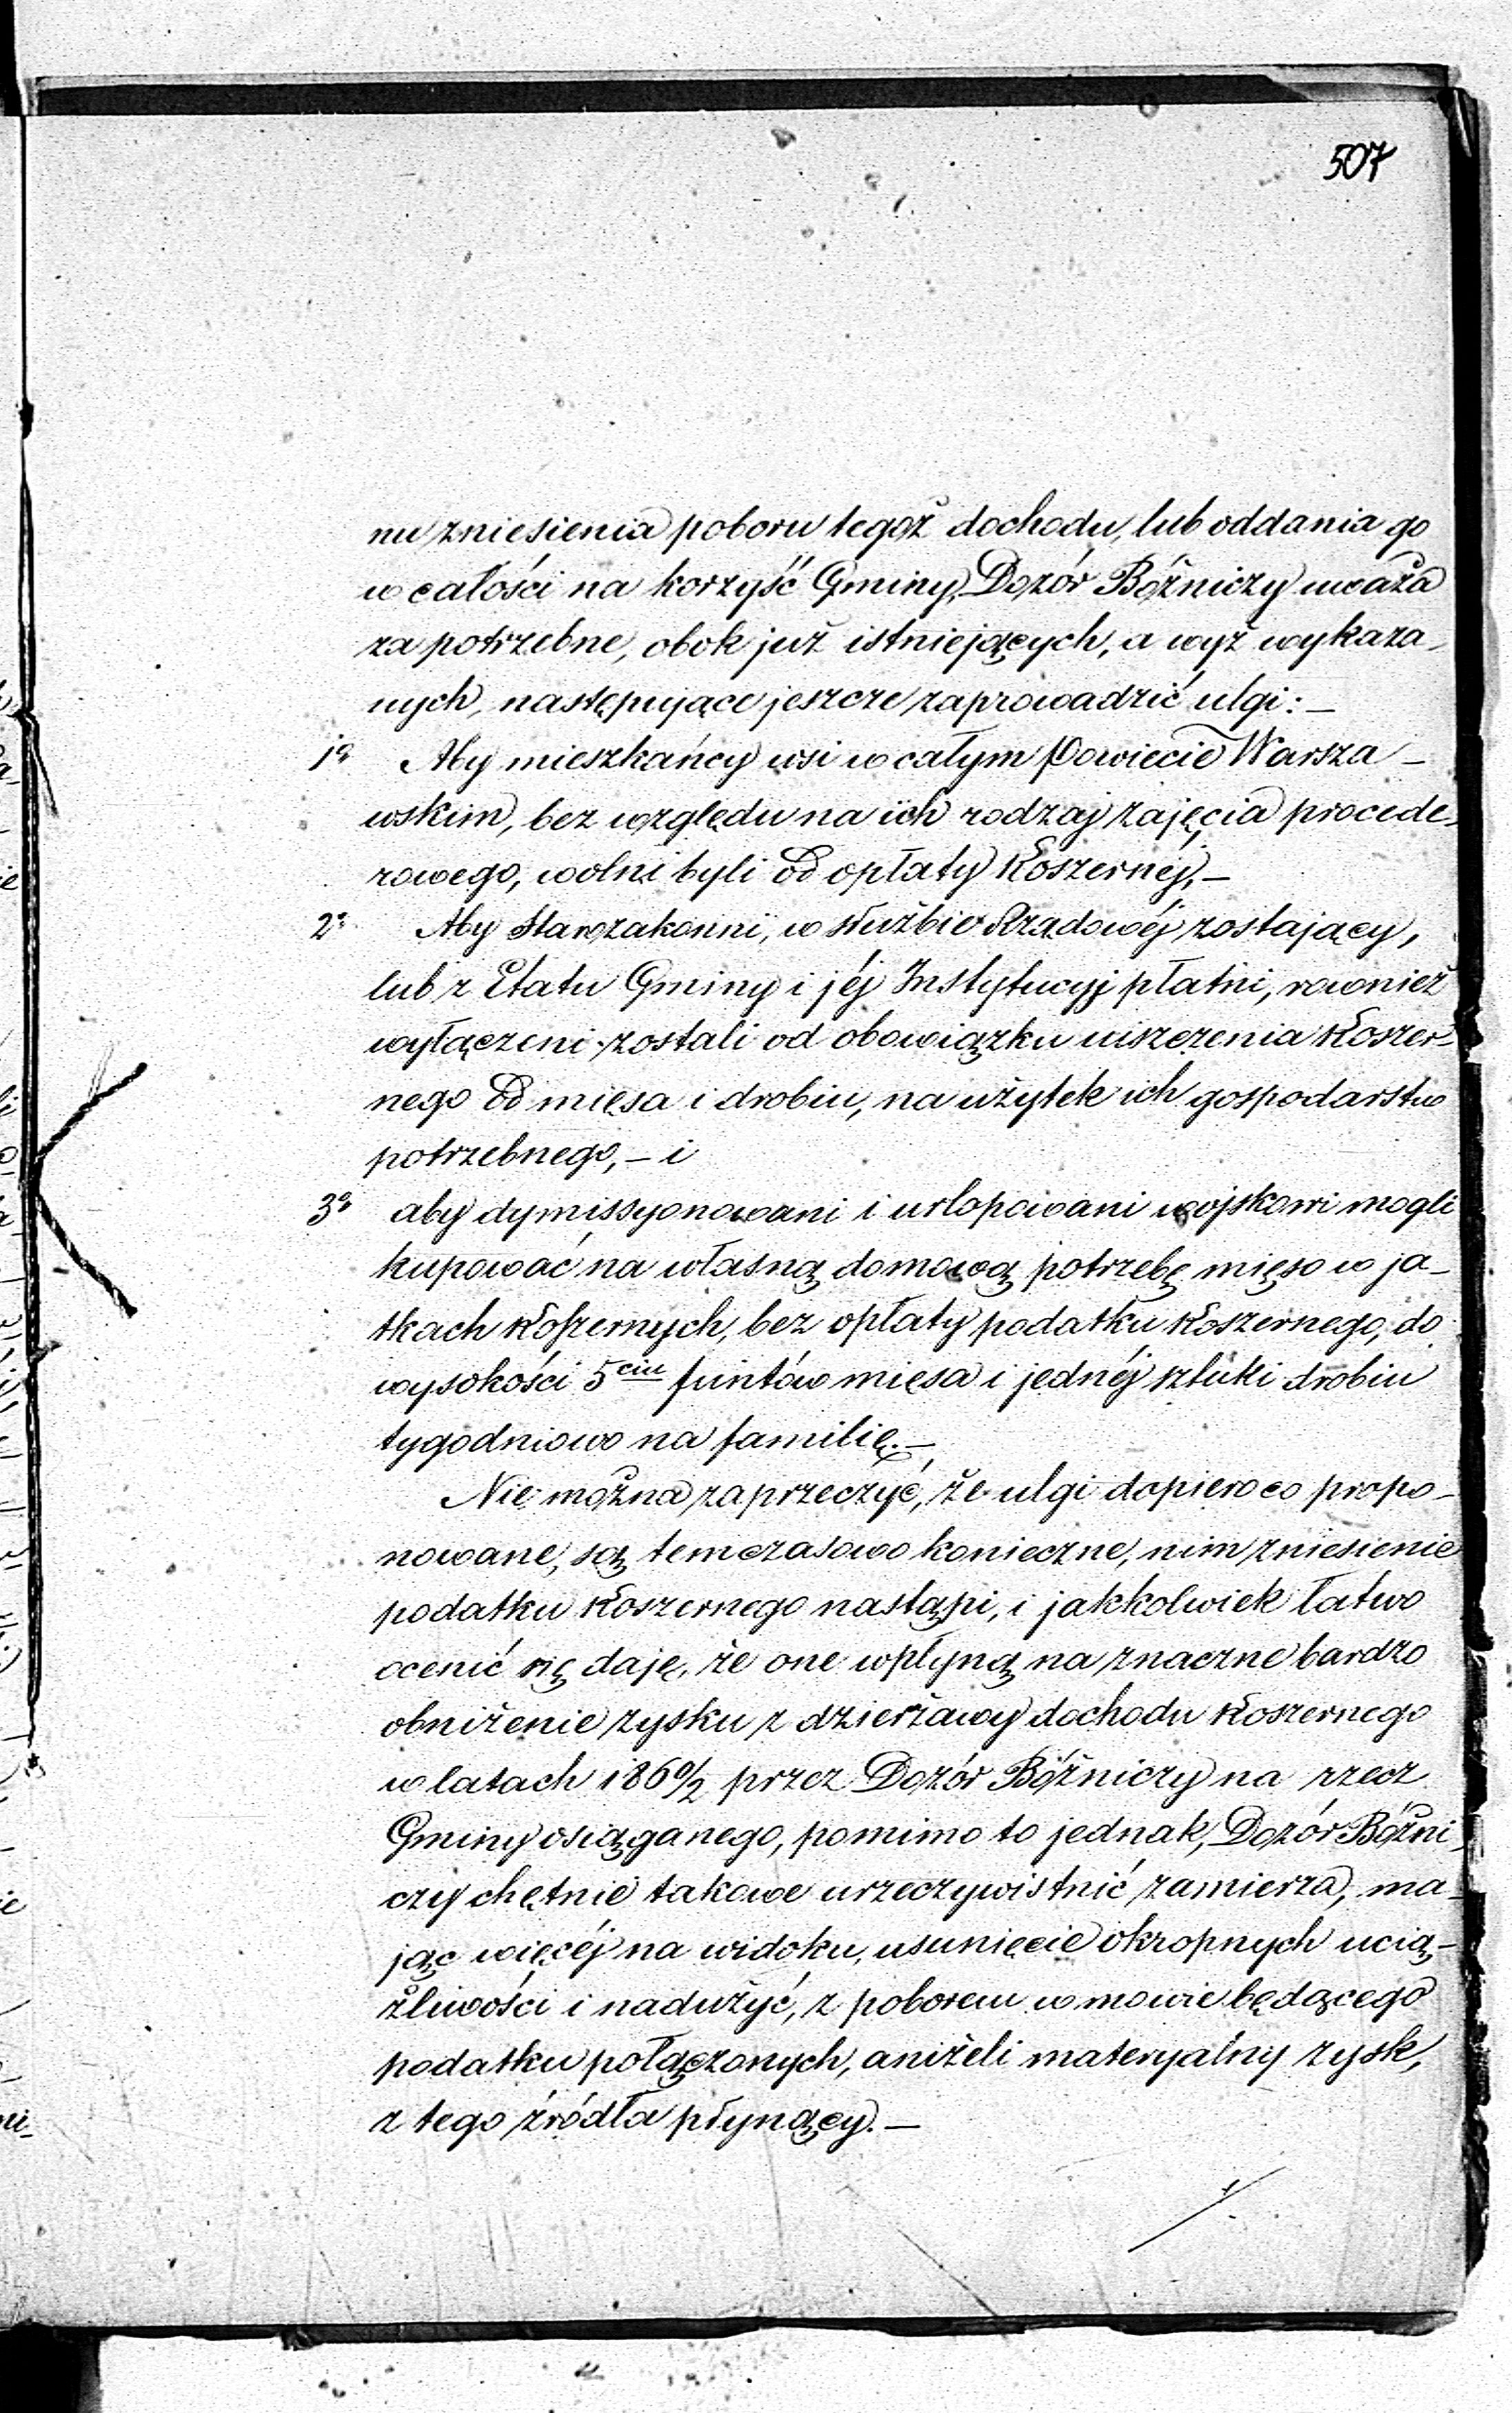 507
nu zniesienia poboru tegoż dochodu, lub oddania go
w całości na korzyść Gminy, Dozór Bóżniczy uważa
za potrzebne, obok już istniejących, a wyż wykaza-
nych, następujące jeszcze zaprowadzić ulgi: —
1o Aby mieszkańcy wsi w całym Powiecie Warsza-
wskim, bez względu na ich rodzaj zajęcia procede-
rowego, wolni byli od opłaty koszernéj, —
2o Aby Starozakonni, w służbie Rządowéj zostający,
lub z Etatu Gminy i jéj Instytucyj płatni, rownież
wyłączeni zostali od obowiązku uiszczenia koszer-
nego od mięsa i drobiu, na użytek ich gospodarstw
potrzebnego, — i
3o aby dymissyonowani i urlopowani wojskowi mogli
kupować na własną domową potrzebę mięso w ja-
tkach koszernych, bez opłaty podatku koszernego, do
wysokości 5ciu funtów mięsa i jednéj sztuki drobiu
tygodniowo na familię. —
Nie można zaprzeczyć, że ulgi dopiero co propo-
nowane, są temczasowo konieczne, nim zniesienie
podatku koszernego nastąpi, i jakkolwiek łatwo
ocenić się daje, że one wpłyną na znaczne bardzo
obniżenie zysku z dzierżawy dochodu koszernego
w latach 1860/2 przez Dozór Bóżniczy na rzecz
Gminy osiąganego, pomimo to jednak, Dozór Bóżni-
czy chętnie takowe urzeczywistnić zamierza, ma-
jąc więcéj na widoku, usunięcie okropnych ucią-
żliwości i nadużyć, z poborem w mowie będącego
podatku połączonych, aniżeli materyalny zysk,
z tego źródła płynący. —